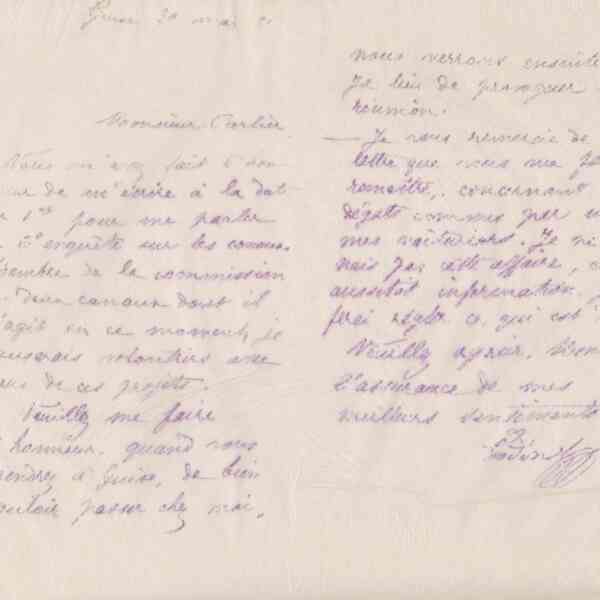 Guise 20 mai
Monsieur Carlier
Vous m'avez fait l'hon
de m'écrire à la dat
1er pour me parler
enquête sur les canaux.
membre de la commission
deux canaux dont il
s'agit en ce moment, je
causerais volontiers avec
vous de ces projets.
Veuillez me faire
l'honneur, quand vous
viendrez à Guise, de bien
vouloir passer chez moi,
nous verrons ensuite
y a lieu de provoquer
réunion.
— Je vous remercie de
lettre que vous me
remettre, concernant
dégats commis par u
mes voituriers. Je ne
nais pas cette affaire,
aussitôt information, j
ferai régler ce qui est
Veuillez agréer, Mon
l'assurance de mes
meilleurs sentiments
Godin